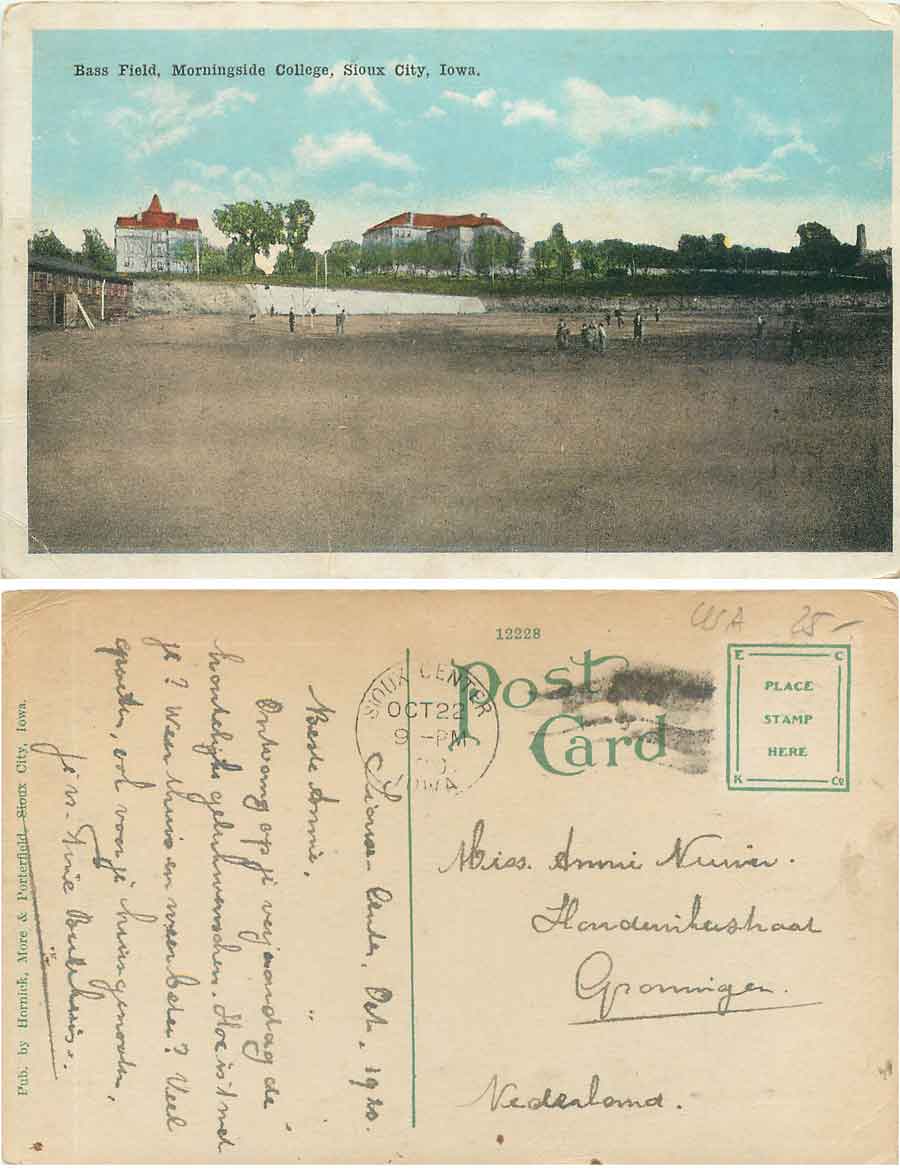 Bass Field, Morningside College, Sioux City, Iowa.
12228
USA 25-
SIOUX CENTER
OCT 22
9 -PM
IOWA
Post
Card
E C
PLACE
STAMP
HERE
K Co
Sioux-Center, Oct. 1920.
Beste Annie,
Ontvang op je verjaardag de
hartelijke gelukwenschen. Hoe is 't met
je? Weer thuis en weer beter? Veel
groeten, ook voor je huisgenooten,
je n-
Miss. Annie
Groningen.
Nederland.
Pub. by Hornick, More & Porterfield, Sioux City, Iowa.